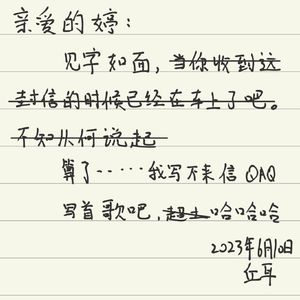 亲爱的婷：
见字如面，当你收到这
封信的时候已经在车上了吧。
不知从何说起
算了······我写不来信 QAQ
写首歌吧，超土哈哈哈
2023年6月10日
丘耳